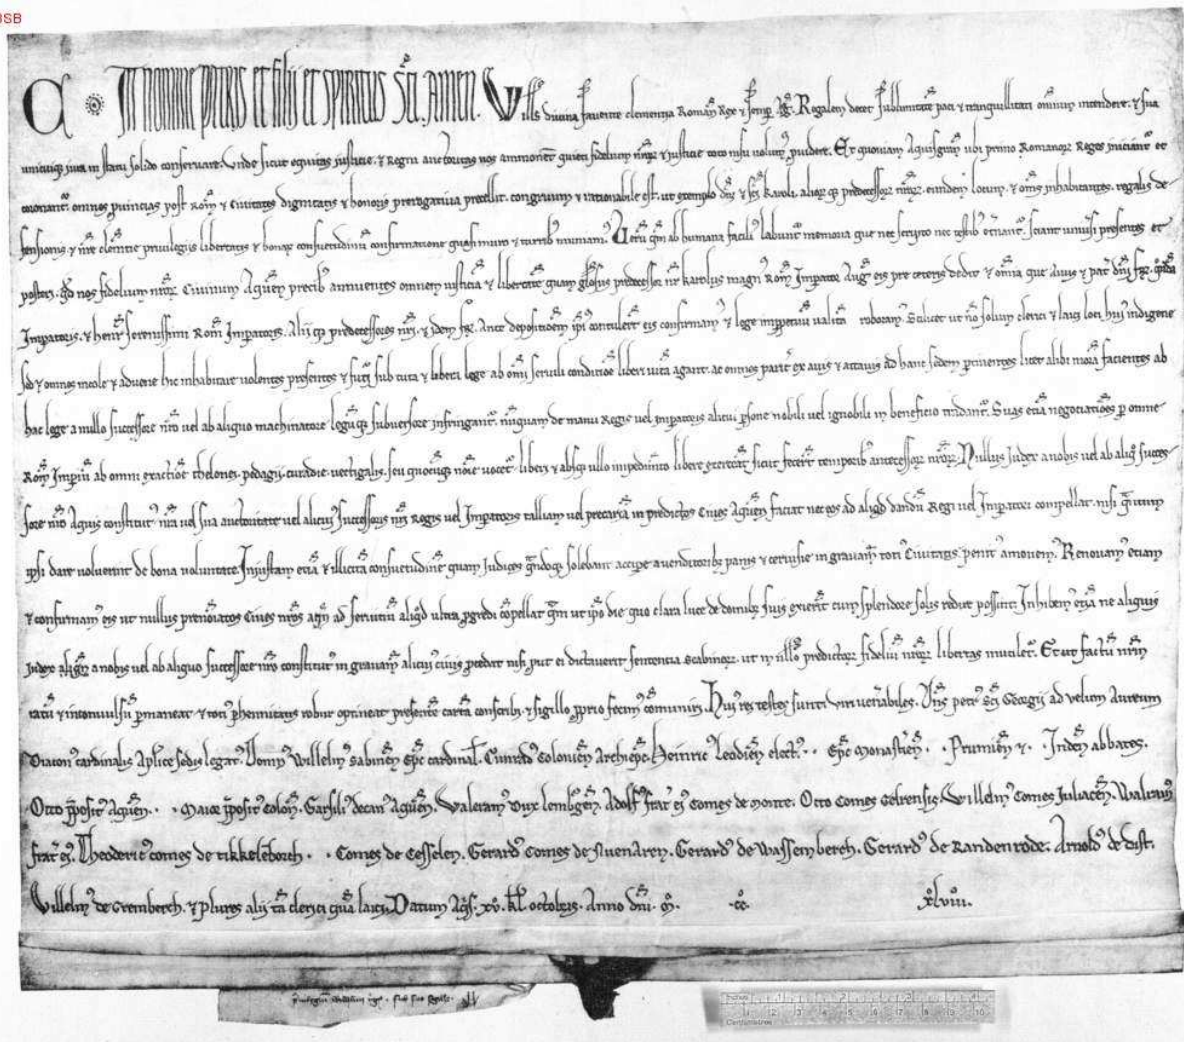 BSB
C IN NOMINE PATRIS ET FILII ET SPIRITUS Sc̄i. AMEN. Wills̄ divina favente clementia Roman̄ Rex & semp̄ Regalem decet sublimitatē paci & tranquillitati omnium intendere. & sua
unicuiq; iura in statu solido conservare. Unde sicut equitas iusticie. & Regni auctoritas nos ammonet quieti fidelium nr̄oꝝ & iusticie toto nisu volum᾽ pvidere. Et quoniam Aquisgranū ubi primo Romanoꝝ Reges iniciant᾽ et
coronant᾽ omnes pvincias post Romā & Civitates dignitatis & honoris prerogativa precellit. congruum & rationabile est. ut exemplo dn̄i & sc̄i karoli. alioꝝ q; predecessoꝝ nr̄oꝝ. eundem locum. & om̄s inhabitantes. regalis de
fensionis. & nr̄e clem̄tie privilegiis libertatis & bonaꝝ consuetudinū confirmatione quasi muro & turrib᾽ muniam᾽. Verū q̄m ab humana facili᾽ labunt᾽ memoria que nec scripto nec testib᾽ et̄nant᾽. sciant univ̄si presentes et
posteri. qd̄ nos fidelium nr̄oꝝ Civium Aquen̄ precib᾽ annuentes omnem iusticiā & libertatē quam gl̄osus predecessor nr̄ karolus magn᾽ Rom̄ Imperator Aug᾽ eis pre ceteris dedit & om̄ia que Avus & pat̄ dn̄i fr̄. q̄ndā
Impatoris. & henr̄ serenissimi Rom̄ Imperatoris. Alij q; predecessores nr̄i. & idem fr̄. Ante depositionem ip̄i contulert̄ eis confirmam᾽ & lege impp̄etuū valitā roboram᾽. Scilicet ut nō solum clerici & laici loci hui᾽ indigene
sed & omnes incole & advene hic inhabitare volentes presentes & futuri sub tuta & libera lege ab om̄i servili conditiōe liberi vitā agant. ac omnes parit̄ ex avis & attavis ad hanc sedem ptinentes licet alibi morā facientes ab
hac lege a nullo successore nr̄o vel ab aliquo machinatore legūq; subversore infringant᾽. nūquam de manu Regis vel impatoris alicui psone nobili vel ignobili in beneficio tradant᾽. Suas etiā negociatiōes p omne
Rom̄ Imperiū ab omni exactiōe thelonei. pedagij. curadie. vectigalis. seu quocūq; noīe vocet᾽. liberi & absq; ullo impedim̄to libere exerceāt sicut fecer̄t temporib᾽ antecessoꝝ nr̄oꝝ. Nullus Judex a nobis vel ab aliq᾽ succes-
sore nr̄o Aquis constitut᾽ nr̄a vel sua auctoritate vel alicui᾽ successoris nr̄i Regis vel Imperatoris talliam vel precariā in predictos Cives Aquen̄ faciat nec eos ad aliqd dandū Regi vel Imperatori compellat. nisi q̄ntum
ipsi dare voluerint de bona voluntate. Injustam etiā & illicitā consuetudinē quam Judices q̄ndoq; solebant accipe a venditorib; panis & cervisie in gravam̄ toti᾽ Civitatis. penit᾽ amovem᾽. Renovam᾽ etiam
& confirmam᾽ eis ut nullus prenōiatos Cives nr̄os aqn̄ ad servitiū aliq̄d ultra pgredi cōpellat q̄m ut ip̄o die quo clara luce de domib; suis exier̄t cum splendore solis redire possint. Inhibem᾽ etiā ne aliquis
Judex aliqm̄ a nobis vel ab aliquo successore nr̄o constitut᾽ in gravam̄ alicui᾽ civis pcedat nisi put ei dictaverit sententia scabinoꝝ. ut in nullo predictoꝝ fideliū nr̄oꝝ libertas mutilet᾽. Et ut factū nr̄m
ratū & inconvulsū pmaneat & toti᾽ phennitatis robur optineat presentē cartā conscribi & sigillo pprio fecim᾽ comuniri. Hui᾽ rei testes sunt viri ven̄abiles. Dn̄s petr᾽ sc̄i Georgii ad velum Aureum
Diacon᾽ cardinalis Aplice sedis legat᾽. Domn᾽ Willelm᾽ sabinen̄ epc̄ cardinal̄. Cunrad᾽ Colonien̄ Archiepc̄. Heinric᾽ Leodien̄ elect᾽. . . epc̄ monastien̄. . . Prumien̄ &. . Inden̄ abbates.
Otto p̄posit᾽ Aquen̄. . . Maior p̄posit᾽ colon̄. Garsili᾽ decan᾽ aquen̄. Waleram᾽ Dux lemb᾽gen̄. Adolf᾽ frat̄ ei᾽ Comes de monte. Otto Comes Gelrensis. Willelm᾽ Comes Juliacen̄. Walram᾽
frat̄ ei᾽. Theoderic᾽ comes de
Comes de Cesselen. Gerard᾽ Comes de Nuenaren. Gerard᾽ de Wassemberch. Gerard᾽ de Randenrode. Arnold᾽ de dist.
Willelm᾽ de Gremberch. & plures alij tā clerici quā laici. Datum Aq̄s. xv. kl̄. octobris. Anno dn̄i. m̄. .cc. xlviii.